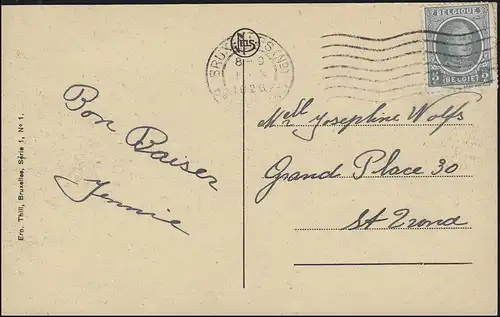 BELGIQUE
5 BELGIË 5
BRUXELLES (ND)
1926
Bon Baiser
Jennie
Melle Josephine Wolfs
Grand Place 30
St Trond
Ern. Thill, Bruxelles, Série 1, No 1.